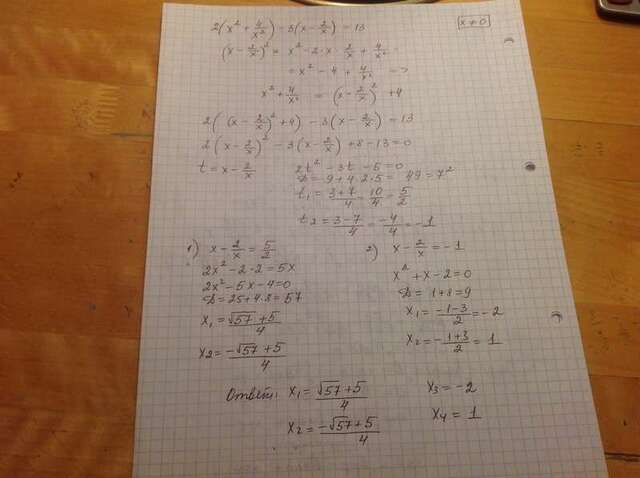 2(x² + 4/x²) - 3(x - 2/x) = 13
x ≠ 0
(x - 2/x)² = x² - 2·x·2/x + 4/x² =
= x² - 4 + 4/x² =>
x² + 4/x² = (x - 2/x)² + 4
2((x - 2/x)² + 4) - 3(x - 2/x) = 13
2(x - 2/x)² - 3(x - 2/x) + 8 - 13 = 0
t = x - 2/x
2t² - 3t - 5 = 0
D = 9 + 4·2·5 = 49 = 7²
t₁ = (3+7)/4 = 10/4 = 5/2
t₂ = (3-7)/4 = -4/4 = -1
1) x - 2/x = 5/2
2x² - 2·2 = 5x
2x² - 5x - 4 = 0
D = 25 + 4·8 = 57
x₁ = (√57 + 5)/4
x₂ = (-√57 + 5)/4
2) x - 2/x = -1
x² + x - 2 = 0
D = 1 + 8 = 9
x₁ = (-1-3)/2 = -2
x₂ = (-1+3)/2 = 1
Ответ: x₁ = (√57 + 5)/4
x₂ = (-√57 + 5)/4
x₃ = -2
x₄ = 1